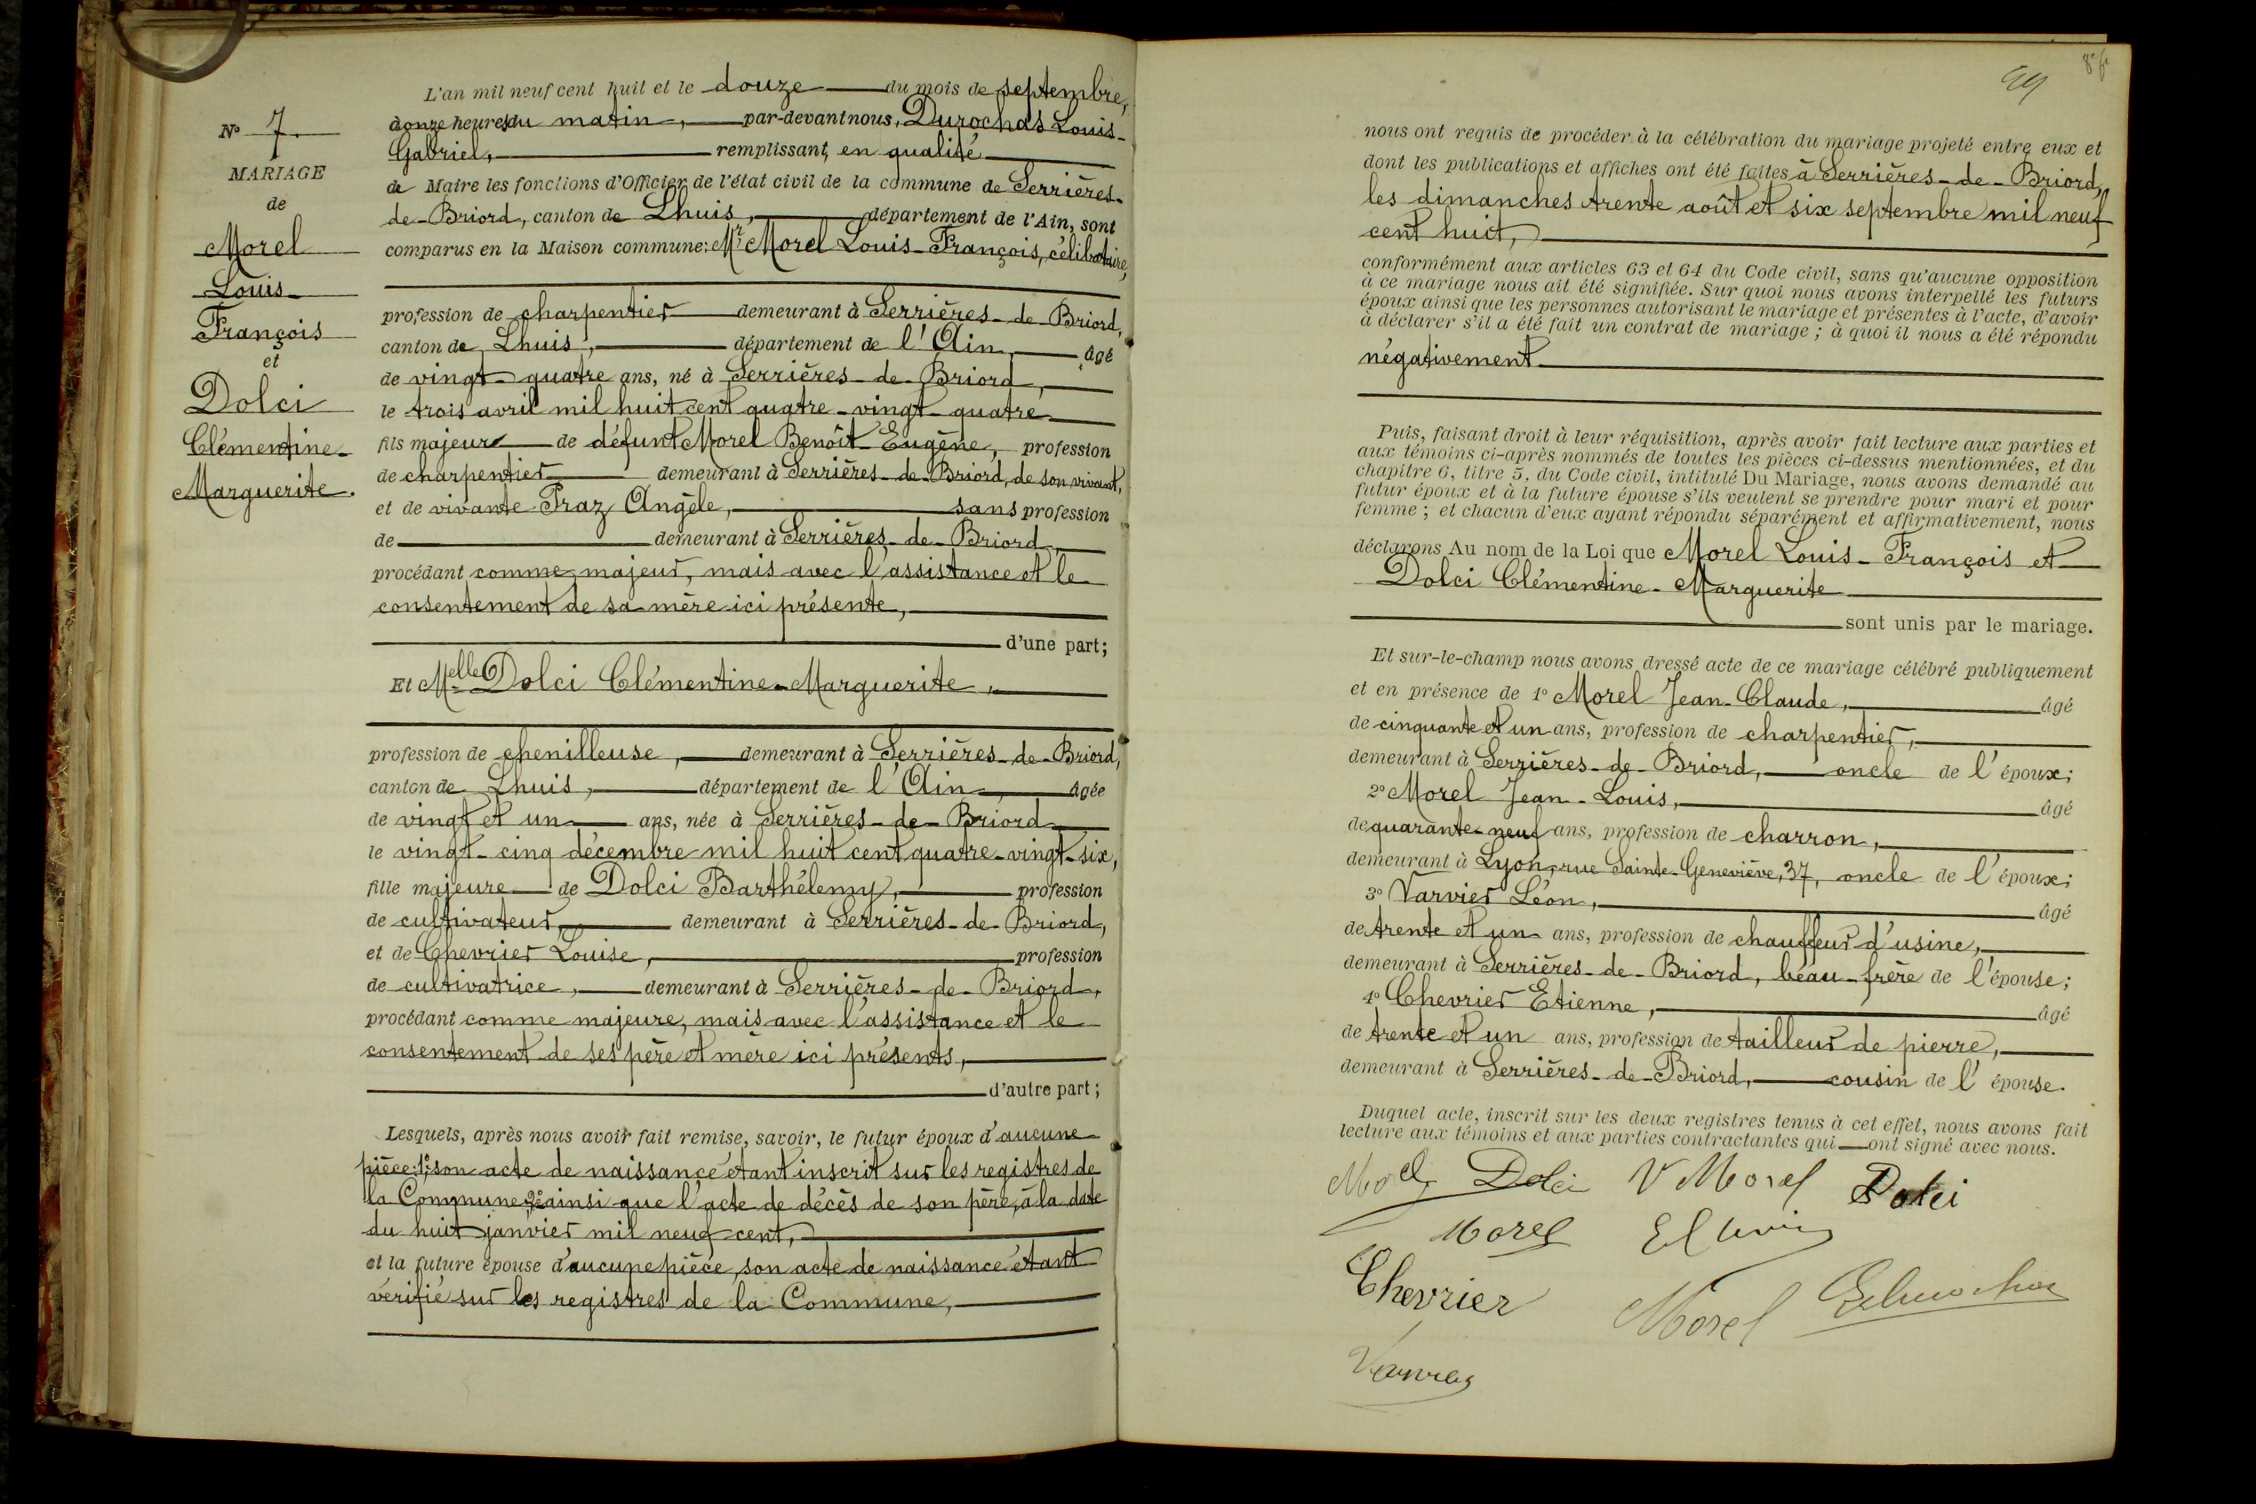 L'an mil neuf cent huit et le douze du mois de septembre,
à onze heures du matin, par-devant nous, Durochas Louis-
Gabriel, remplissant, en qualité
de Maire les fonctions d'Officier de l'état civil de la commune de Serrières-
de-Briord, canton de Lhuis, département de l'Ain, sont
comparus en la Maison commune: Mr Morel Louis-François, célibataire,
profession de charpentier demeurant à Serrières-de-Briord,
canton de Lhuis, département de l'Ain, âgé
de vingt-quatre ans, né à Serrières-de-Briord,
le trois avril mil huit cent quatre-vingt-quatre
fils majeur de défunt Morel Benoît Eugène, profession
de charpentier demeurant à Serrières-de-Briord, de son vivant,
et de vivante Praz Angèle, sans profession
de demeurant à Serrières-de-Briord,
procédant comme majeur, mais avec l'assistance et le
consentement de sa mère ici présente,
d'une part;
Et Melle Dolci Clémentine-Marguerite,
profession de chenilleuse, demeurant à Serrières-de-Briord,
canton de Lhuis, département de l'Ain, âgée
de vingt et un ans, née à Serrières-de-Briord
le vingt-cinq décembre mil huit cent quatre-vingt-six,
fille majeure de Dolci Barthélemy, profession
de cultivateur, demeurant à Serrières-de-Briord,
et de Chevrier Louise, profession
de cultivatrice, demeurant à Serrières-de-Briord,
procédant comme majeure, mais avec l'assistance et le
consentement de ses père et mère ici présents,
d'autre part;
Lesquels, après nous avoir fait remise, savoir, le futur époux d'aucune
pièce: 1° son acte de naissance étant inscrit sur les registres de
la Commune 2° ainsi que l'acte de décès de son père, à la date
du huit janvier mil neuf cent,
et la future épouse d'aucune pièce, son acte de naissance étant
vérifié sur les registres de la Commune,
N° 7.
MARIAGE
de
Morel
Louis-
François
et
Dolci
Clémentine-
Marguerite.
49
nous ont requis de procéder à la célébration du mariage projeté entre eux et
dont les publications et affiches ont été faites à Serrières-de-Briord,
les dimanches trente août et six septembre mil neuf
cent huit,
conformément aux articles 63 et 64 du Code civil, sans qu'aucune opposition
à ce mariage nous ait été signifiée. Sur quoi nous avons interpellé les futurs
époux ainsi que les personnes autorisant le mariage et présentes à l'acte, d'avoir
à déclarer s'il a été fait un contrat de mariage; à quoi il nous a été répondu
négativement
Puis, faisant droit à leur réquisition, après avoir fait lecture aux parties et
aux témoins ci-après nommés de toutes les pièces ci-dessus mentionnées, et du
chapitre 6, titre 5, du Code civil, intitulé Du Mariage, nous avons demandé au
futur époux et à la future épouse s'ils veulent se prendre pour mari et pour
femme; et chacun d'eux ayant répondu séparément et affirmativement, nous
déclarons Au nom de la Loi que Morel Louis-François et
Dolci Clémentine-Marguerite
sont unis par le mariage.
Et sur-le-champ nous avons dressé acte de ce mariage célébré publiquement
et en présence de 1° Morel Jean-Claude, âgé
de cinquante et un ans, profession de charpentier,
demeurant à Serrières-de-Briord, oncle de l'époux;
2° Morel Jean-Louis, âgé
de quarante-neuf ans, profession de charron,
demeurant à Lyon, rue Sainte-Geneviève, 37, oncle de l'époux;
3° Varvier Léon, âgé
de trente et un ans, profession de chauffeur d'usine,
demeurant à Serrières-de-Briord, beau-frère de l'épouse;
4° Chevrier Etienne, âgé
de trente et un ans, profession de tailleur de pierre,
demeurant à Serrières-de-Briord, cousin de l'épouse.
Duquel acte, inscrit sur les deux registres tenus à cet effet, nous avons fait
lecture aux témoins et aux parties contractantes qui ont signé avec nous.
Morel Dolci V Morel Dolci
Morel
Chevrier
Morel